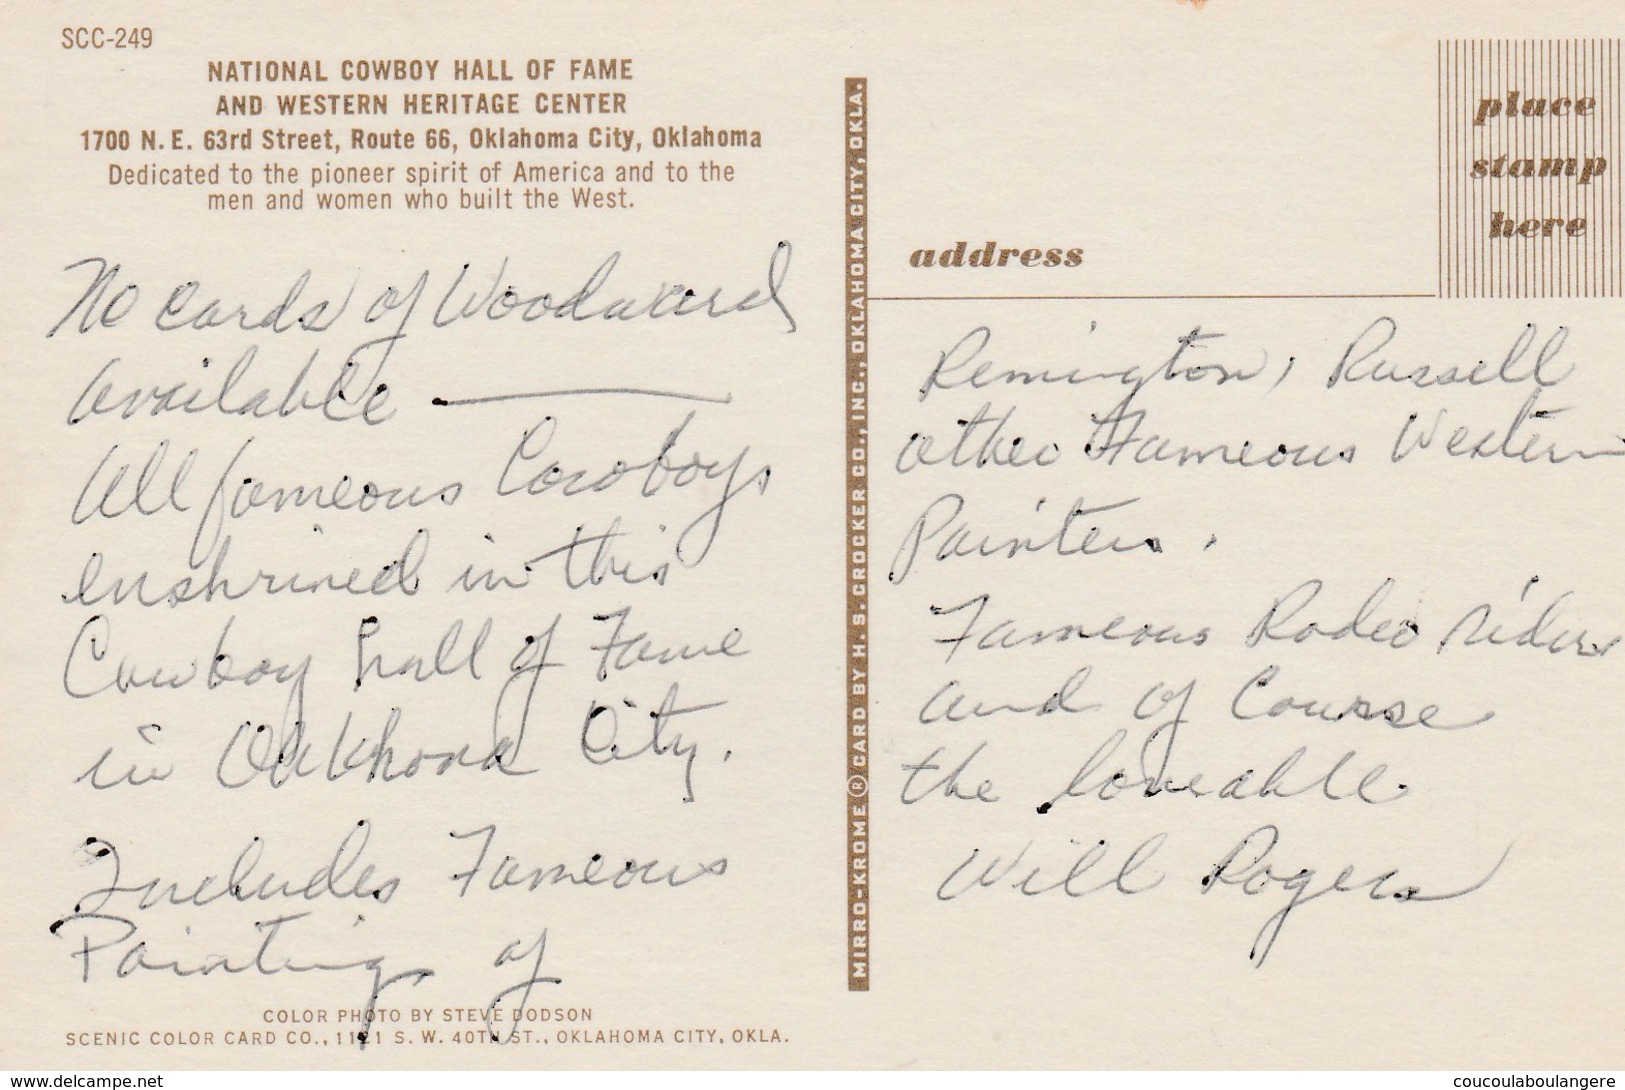 SCC-249
NATIONAL COWBOY HALL OF FAME
AND WESTERN HERITAGE CENTER
1700 N.E. 63rd Street, Route 66, Oklahoma City, Oklahoma
Dedicated to the pioneer spirit of America and to the
men and women who built the West.
No cards of Woodward
available —
All fameous Cowboys
enshrined in this
Cowboy hall of Fame
in Oklhoma City.
Includes Fameous
Paintings of
COLOR PHOTO BY STEVE DODSON
SCENIC COLOR CARD CO., 1121 S. W. 40TH ST., OKLAHOMA CITY, OKLA.
MIRRO-KROME ® CARD BY H. S. CROCKER CO., INC., OKLAHOMA CITY, OKLA.
place
stamp
here
address
Remington, Russell
other Fameous Western
Painters.
Fameous Rodeo riders
and of Course
the loveable
Will Rogers
www.delcampe.net
coucoulaboulangere